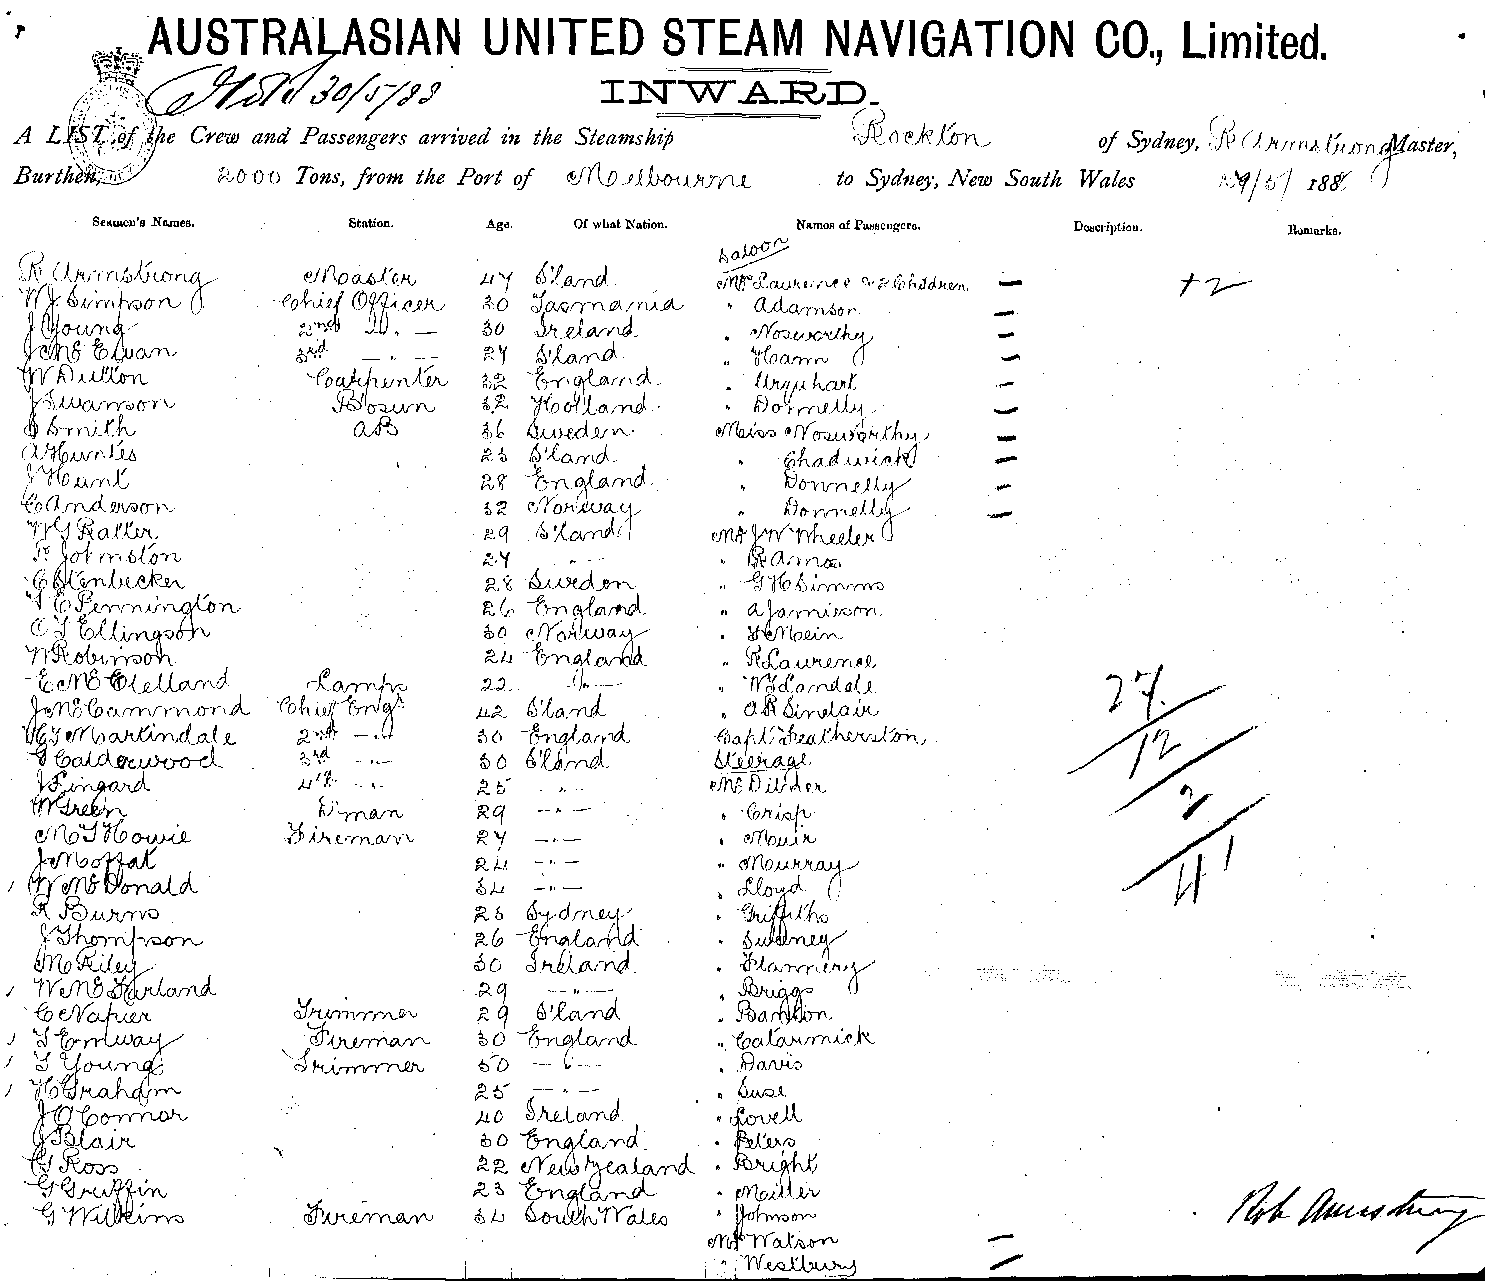 AUSTRALASIAN UNITED STEAM NAVIGATION CO., Limited.
30/5/88
INWARD.
A LIST of the Crew and Passengers arrived in the Steamship Rockton of Sydney, R Armstrong Master,
Burthen, 2000 Tons, from the Port of Melbourne to Sydney, New South Wales 29/5/ 188
Seamen's Names. Station. Age. Of what Nation. Names of Passengers. Description. Remarks.
Saloon
R Armstrong Master 47 S'land Mrs Laurence & 2 Children — +2
W J Simpson Chief Officer 30 Tasmania " Adamson —
J Young 2nd D. — 30 Ireland " Nosworthy —
J McEwan 3rd — " — 27 S'land " Hann —
W Dutton Carpenter 32 England " Urquhart —
J Swanson Bosun 32 Holland " Donnelly —
J Smith AB 36 Sweden Miss Nosworthy —
A Hunter 23 S'land " Chadwick —
J Hunt 28 England " Donnelly —
C Anderson 32 Norway " Donnelly —
W G Ratter 29 S'land Mr J W Wheeler
Johnston 27 — " — " R Amos
C Stenbecker 28 Sweden " G H Simms
Pennington 26 England " A Jamieson
C J Ellingson 30 Norway " F Mein
W Robinson 24 England " R Laurence
E McClelland Lamps 22 — " — " W Landale
J McCammond Chief Engr 42 S'land " A R Sinclair
Martindale 2nd — " 30 England Capt Featherston
G Calderwood 3rd — " 30 S'land Steerage
J Lingard 4th — " 25 — " — Mr Dilder
W Green D'man 29 — " — " Crisp
M J Howie Fireman 27 — " — " Muir
J Moffat 24 — " — " Murray
W McDonald 34 — " — " Lloyd
R Burns 23 Sydney " Griffiths
J Thompson 26 England " Sweeney
M Riley 30 Ireland " Flannery
W McFarland 29 — " — " Briggs
C Napier Trimmer 29 S'land " Banton
Fireman 30 England " Catarmick
T Young Trimmer 50 — " — " Davis
H Graham 25 — " — " Suse
J O'Connor 40 Ireland " Lovell
J Blair 30 England " Peters
G Ross 22 New Zealand " Bright
G Griffin 23 England " Miller
G Wilkins Fireman 34 South Wales " Johnson
Mrs Watson —
" Westbury —
27
12
2
41
Rob Armstrong